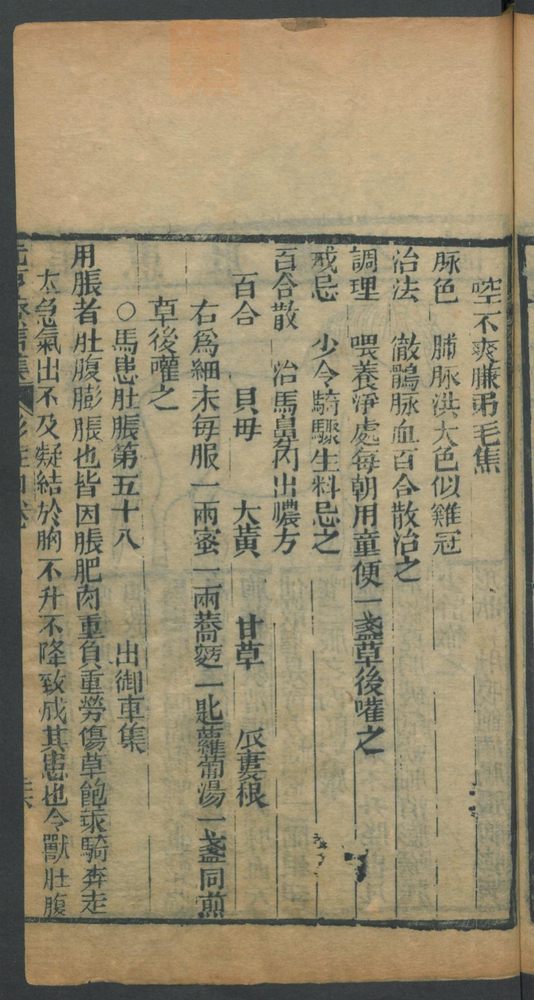 啌不爽賺弔毛焦
脉色　肺脉洪大色似雞冠
治法　徹鶻脉血百合散治之
調理　喂養淨處每朝用童便一盞草後嚾之
戒忌　少令騎驟生料忌之
百合散　治馬鼻內出膿方
百合　貝母　大黃　甘草　瓜蔞根
右爲細末每服一兩蜜一兩蕎麪一匙蘿蔔湯一盞同煎
草後嚾之
○馬患肚脹第五十八　出御車集
用脹者肚腹膨脹也皆因脹肥肉重負重勞傷草飽乘騎奔走
太急氣出不及凝結於胸不升不降致成其患也令獸肚腹